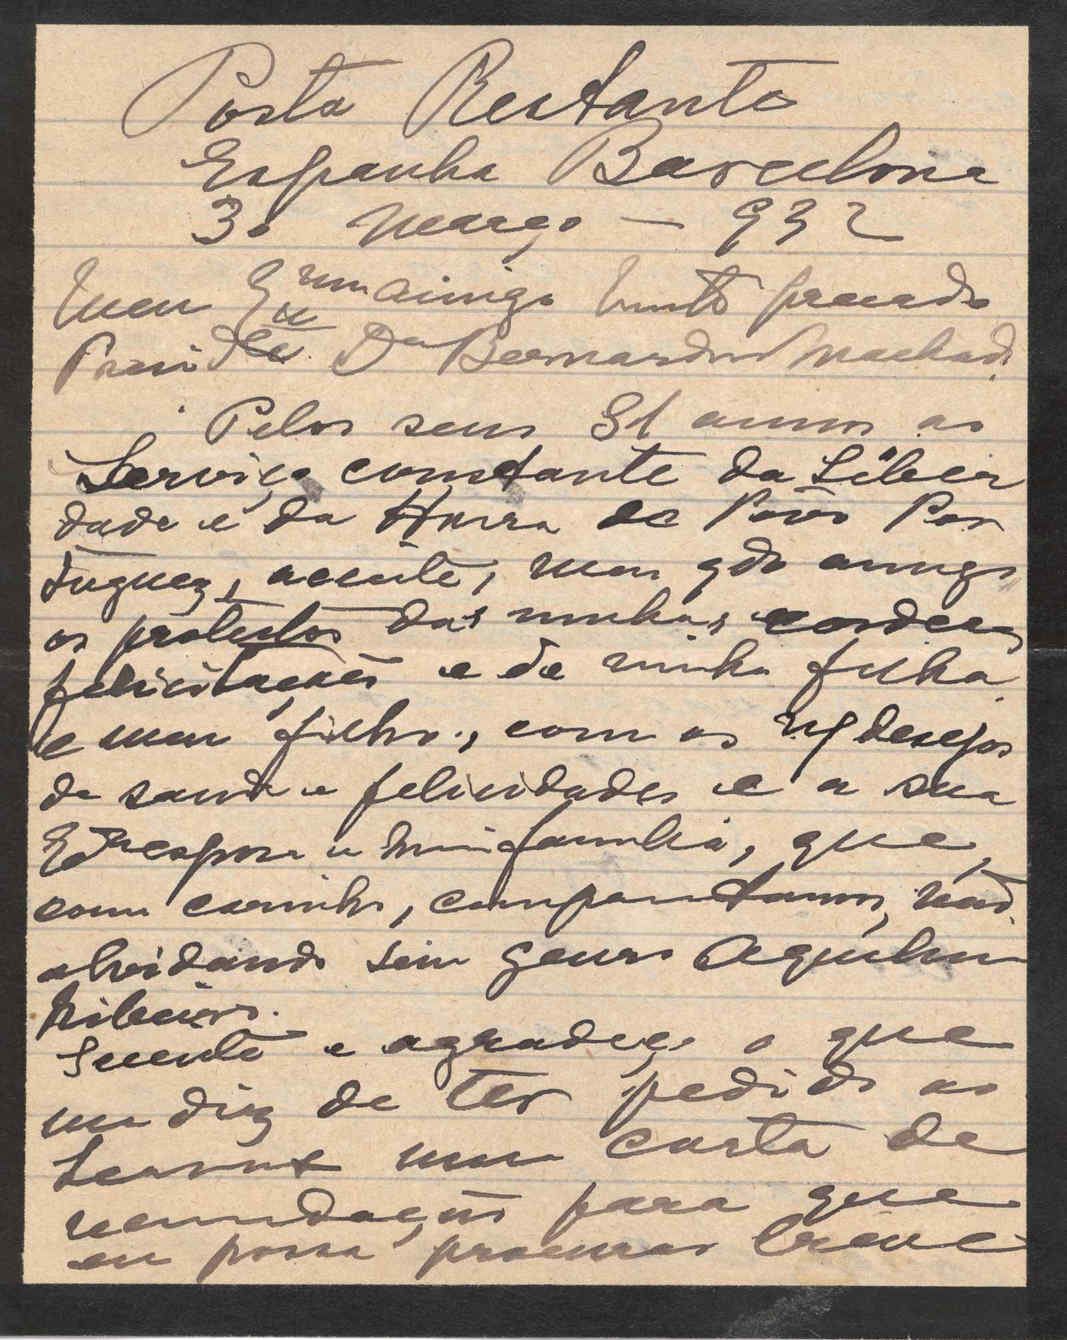 Posta Restante
Espanha Barcelona
30 Março — 932
Meu Exmo amigo muito prezado
Presidte Dr Bernardino Machado
Pelos seus 81 annos ao
Serviço constante da Liber
dade e da Honra do Povo Por
tuguez, acceite, meu qdo amigo
os protestos das minhas cordeaes
felicitações e de minha filha
e meu filho, com os desejos
de saude e felicidades e a sua
Exma esposa e familia, que,
com carinho, cumprimentamos, não
olvidando seu genro Aquilino
Ribeiro.
e agradeço o que
me diz de ter pedido ao
uma carta de
para que
eu possa procurar